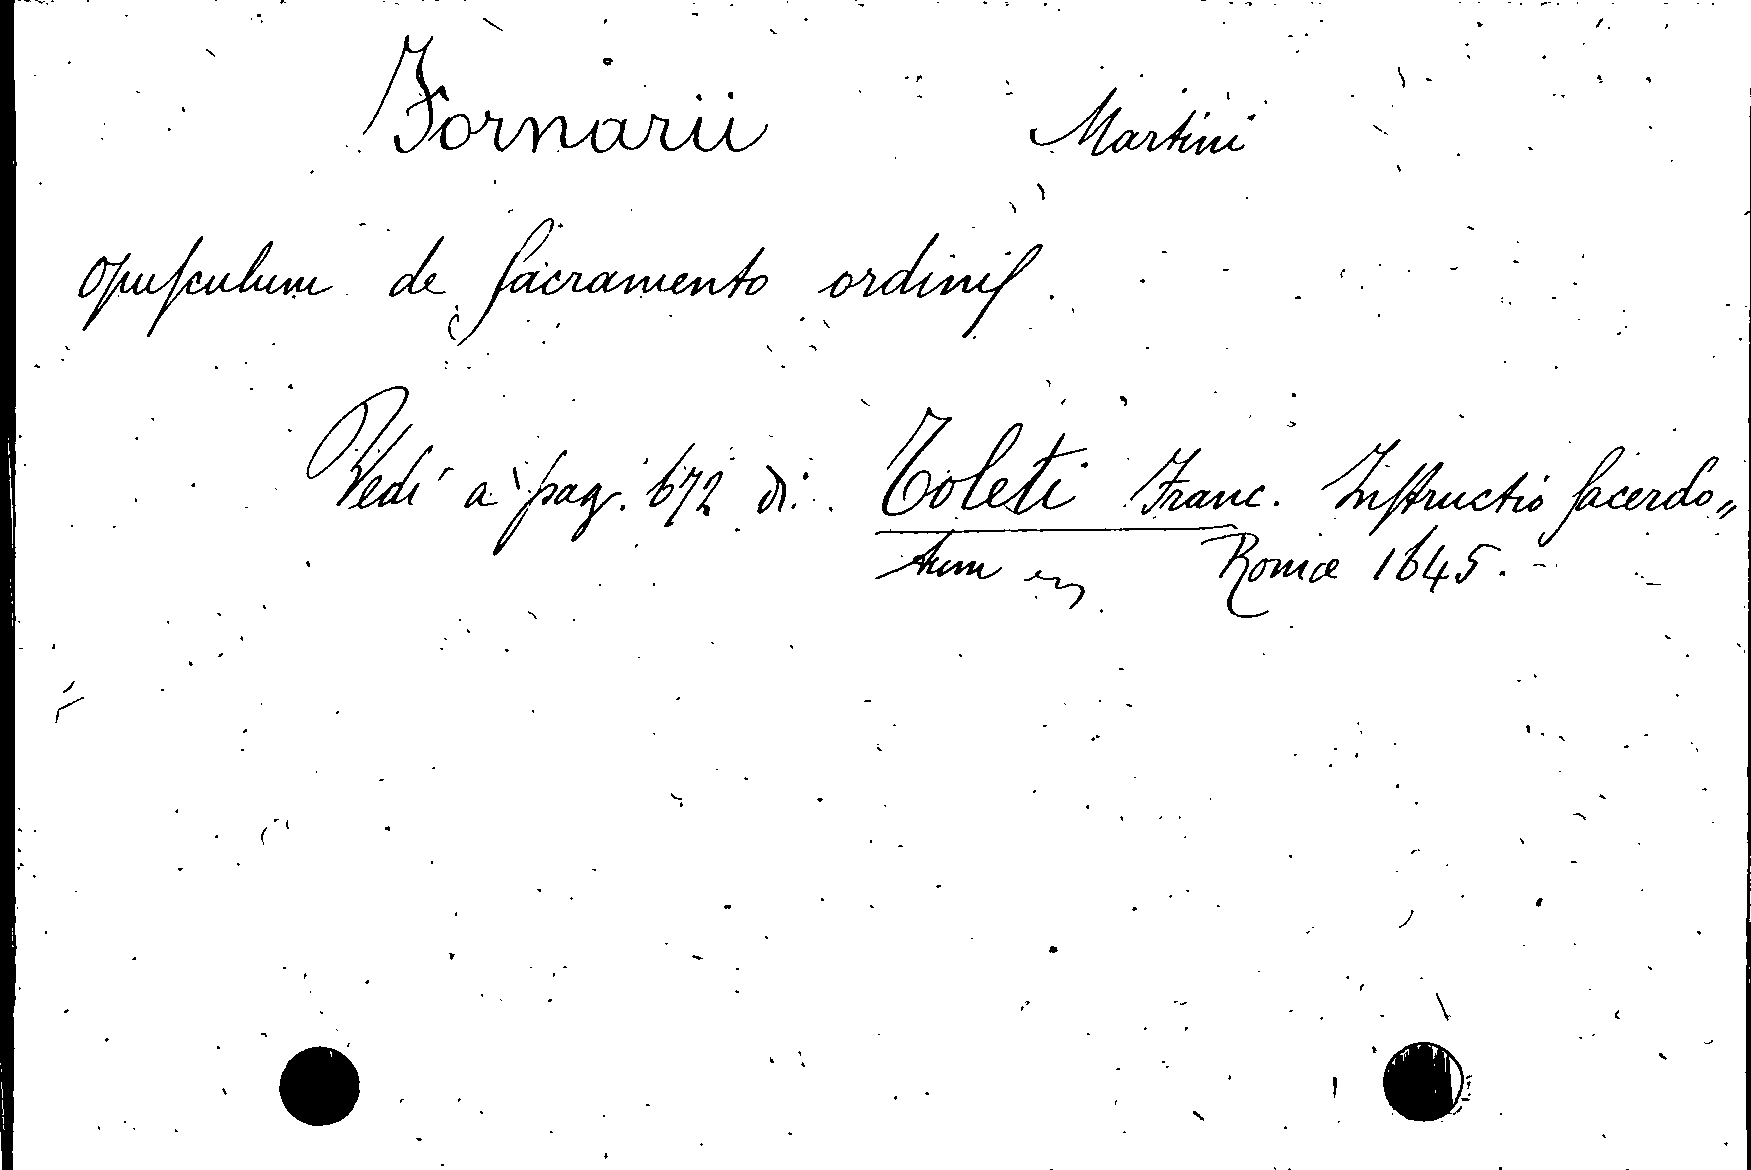 Fornarii Martini
opuſculum de ſacramento ordiniſ
Vedi a pag. 672 di: Toleti Franc. Inſtructio ſacerdo„
tum Romæ 1645.